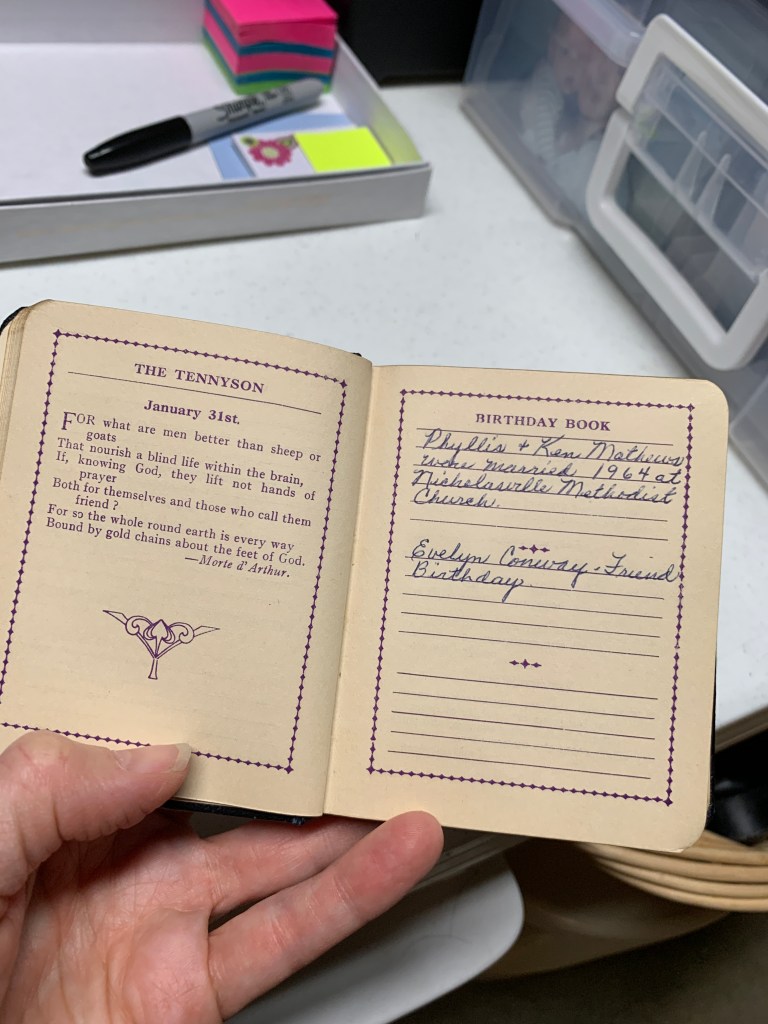 Sharpie
THE TENNYSON
January 31st.
FOR what are men better than sheep or
goats
That nourish a blind life within the brain,
If, knowing God, they lift not hands of
prayer
Both for themselves and those who call them
friend ?
For so the whole round earth is every way
Bound by gold chains about the feet of God.
—Morte d'Arthur.
BIRTHDAY BOOK
Phyllis + Ken Mathews
were married 1964 at
Nicholasville Methodist
Church.
Evelyn Conway - Friend
Birthday